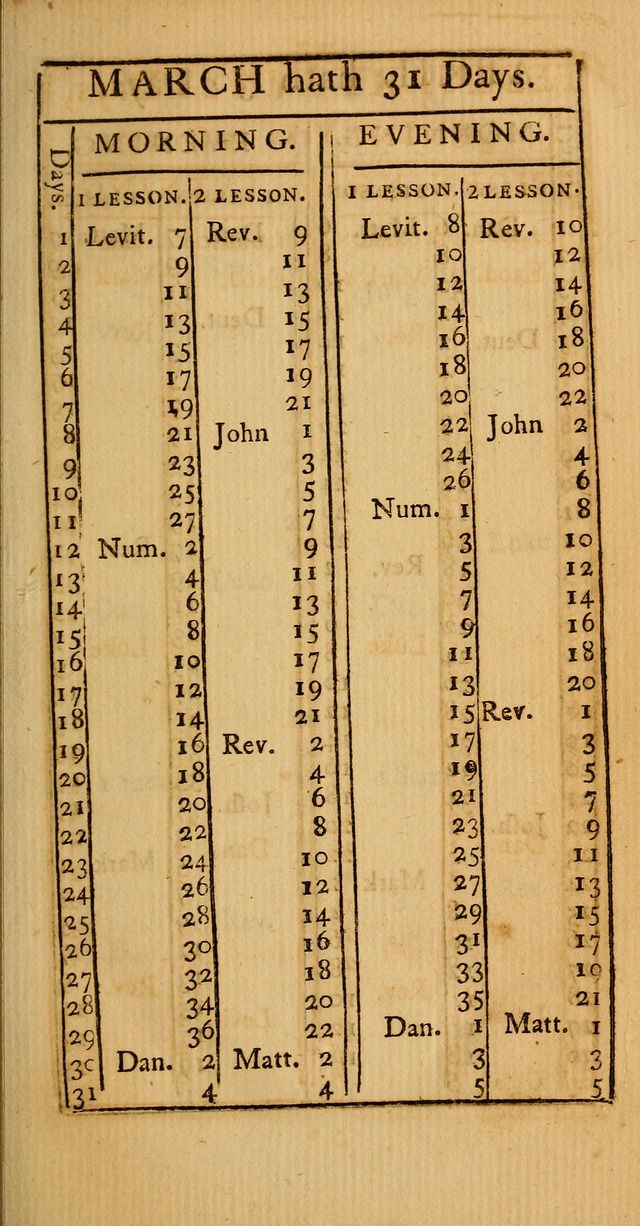 MARCH hath 31 Days.
Days. MORNING. EVENING.
1 LESSON. 2 LESSON. 1 LESSON. 2 LESSON.
1 Levit. 7 Rev. 9 Levit. 8 Rev. 10
2 9 11 10 12
3 11 13 12 14
4 13 15 14 16
5 15 17 16 18
6 17 19 18 20
7 19 21 20 22
8 21 John 1 22 John 2
9 23 3 24 4
10 25 5 26 6
11 27 7 Num. 1 8
12 Num. 2 9 3 10
13 4 11 5 12
14 6 13 7 14
15 8 15 9 16
16 10 17 11 18
17 12 19 13 20
18 14 21 15 Rev. 1
19 16 Rev. 2 17 3
20 18 4 19 5
21 20 6 21 7
22 22 8 23 9
23 24 10 25 11
24 26 12 27 13
25 28 14 29 15
26 30 16 31 17
27 32 18 33 19
28 34 20 35 21
29 36 22 Dan. 1 Matt. 1
30 Dan. 2 Matt. 2 3 3
31 4 4 5 5